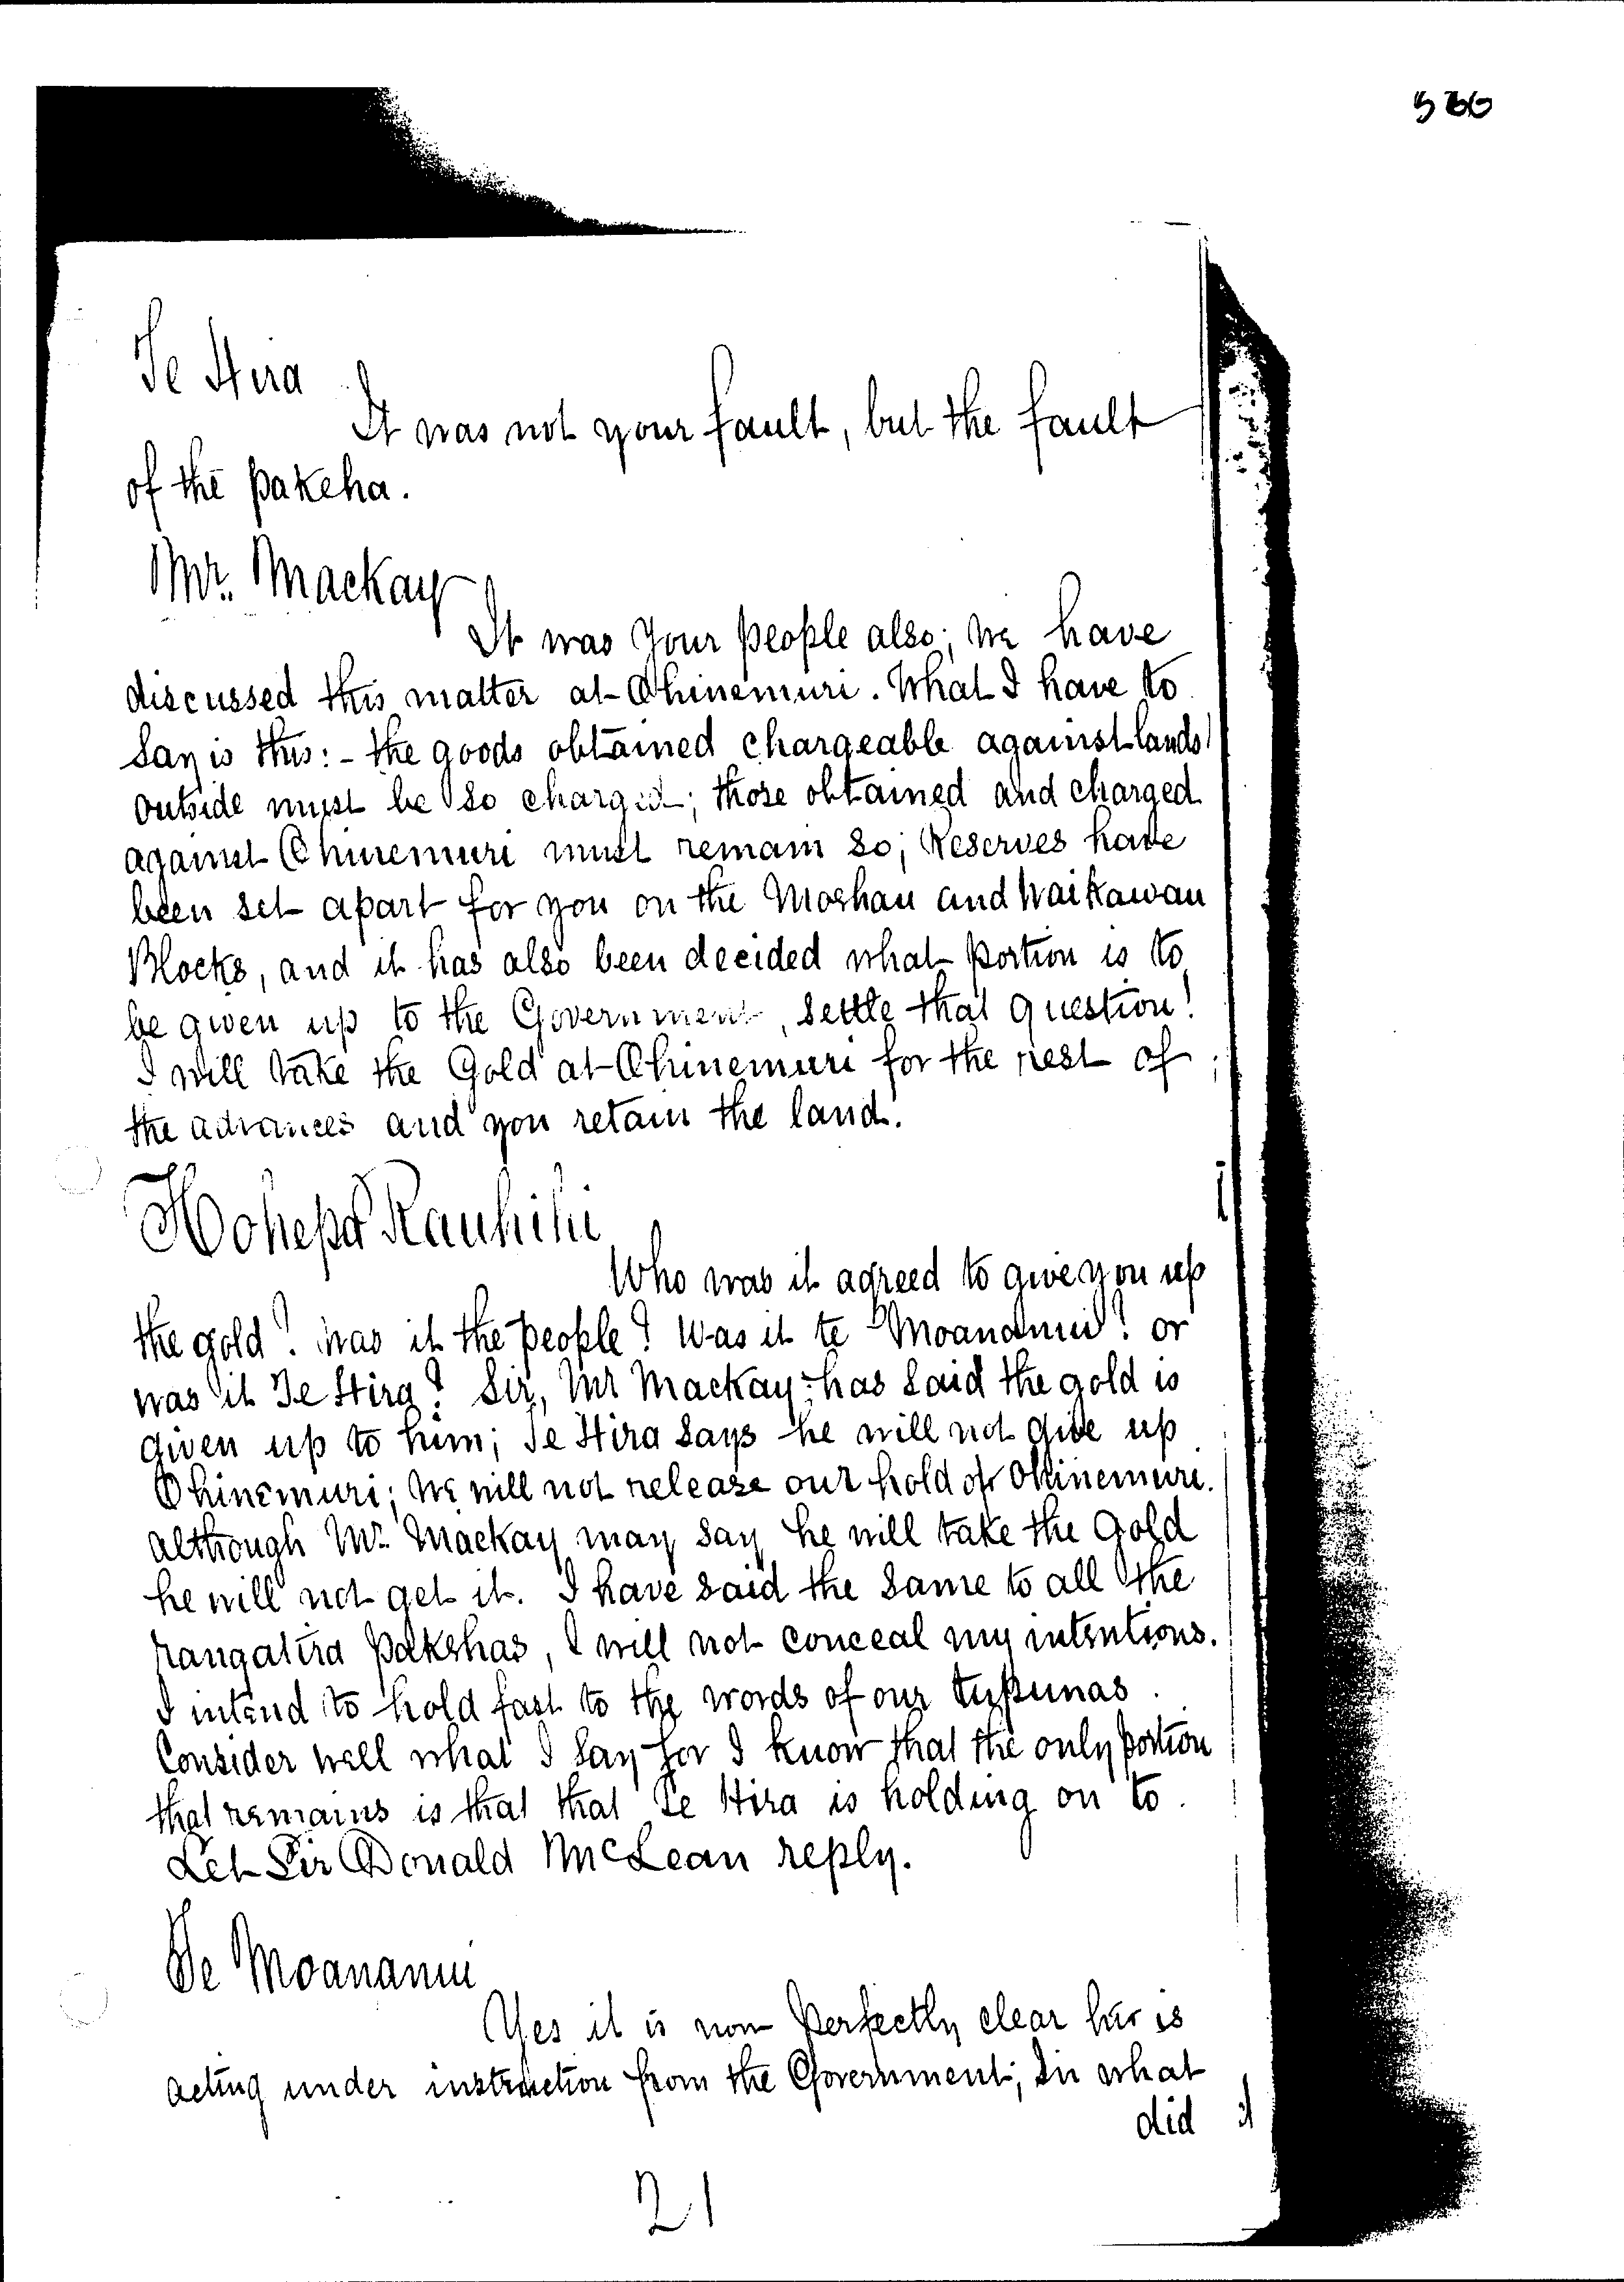 Te Hira
It was not your fault, but the fault
of the pakeha.
Mr. Mackay
It was your people also; we have
discussed this matter at Ohinemuri. What I have to
say is this: - the goods obtained chargeable against lands
outside must be so charged; those obtained and charged
against Ohinemuri must remain so; Reserves have
been set apart for you on the Moehau and Waikawau
Blocks, and it has also been decided what portion is to
be given up to the Government, settle that question!
I will take the Gold at Ohinemuri for the rest of
the advances and you retain the land.
Hohepa Rauhihi
Who was it agreed to give you up
the gold? was it the people? Was it te Moananui? or
was it Te Hira? Sir, Mr Mackay has said the gold is
given up to him; Te Hira says he will not give up
Ohinemuri; we will not release our hold of Ohinemuri.
although Mr. Mackay may say he will take the Gold
he will not get it. I have said the same to all the
rangatira pakehas, I will not conceal my intentions.
I intend to hold fast to the words of our tupunas.
Consider well what I say for I know that the only portion
that remains is that that Te Hira is holding on to.
Let Sir Donald McLean reply.
Te Moananui
Yes it is now perfectly clear he is
acting under instruction from the Government; Sir what
did
21